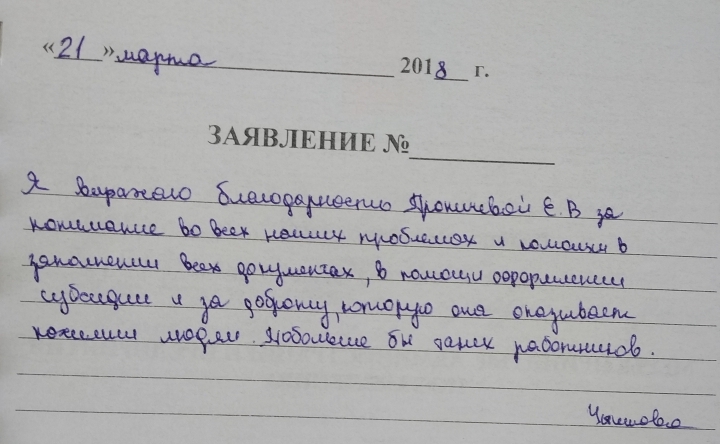 «21» марта 2018 г.
ЗАЯВЛЕНИЕ №
Я выражаю благодарность Проничевой Е. В за
понимание во всех наших проблемах и помощи в
заполнении всех документах, в помощи оформлении
субсидии и за доброту, которую она оказывает
пожилым людям. Побольше бы таких работников.